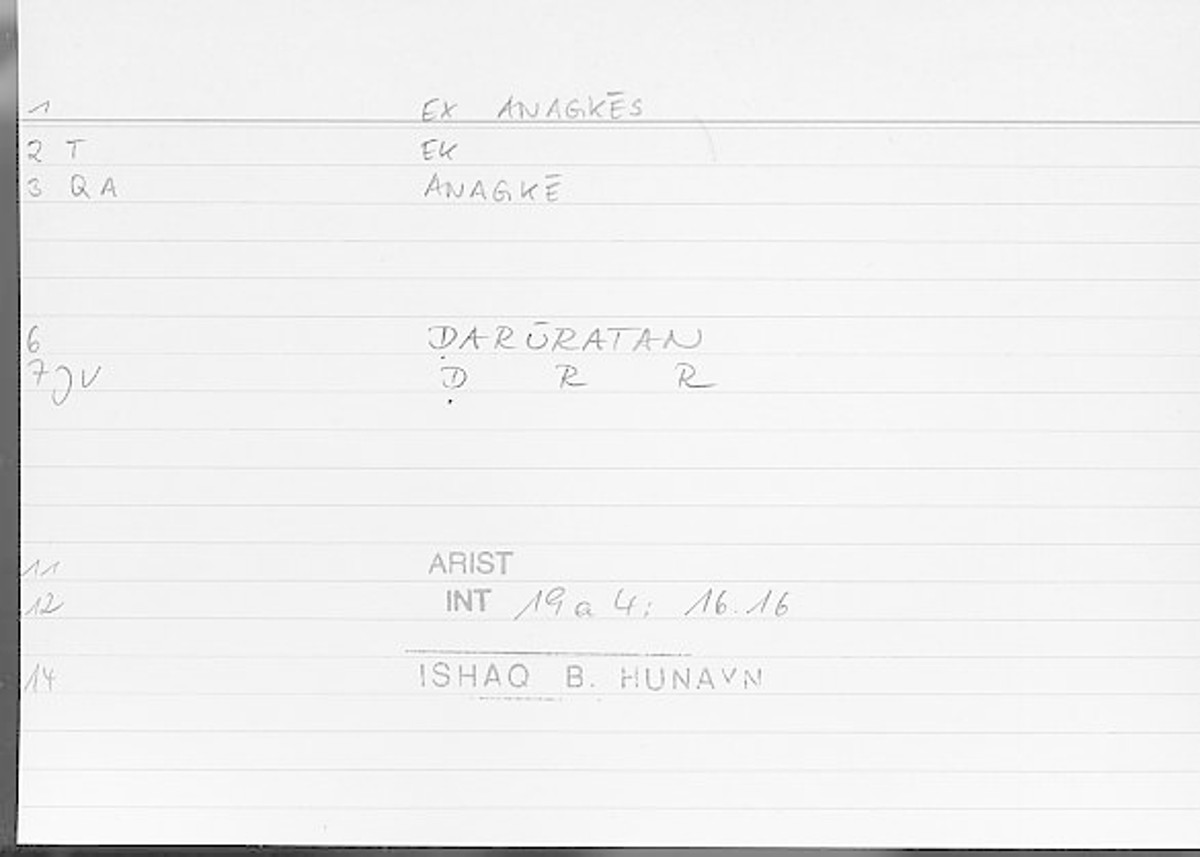 1 EX ANAGKĒS
2 T EK
3 QA ANAGKĒ
6 ḌARŪRATAN
7 JV Ḍ R R
11 ARIST
12 INT 19a4; 16.16
14 ISHAQ B. HUNAYN